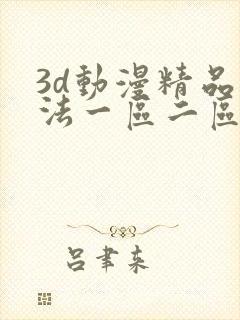 3d動漫精品
法一區二區
呂聿来